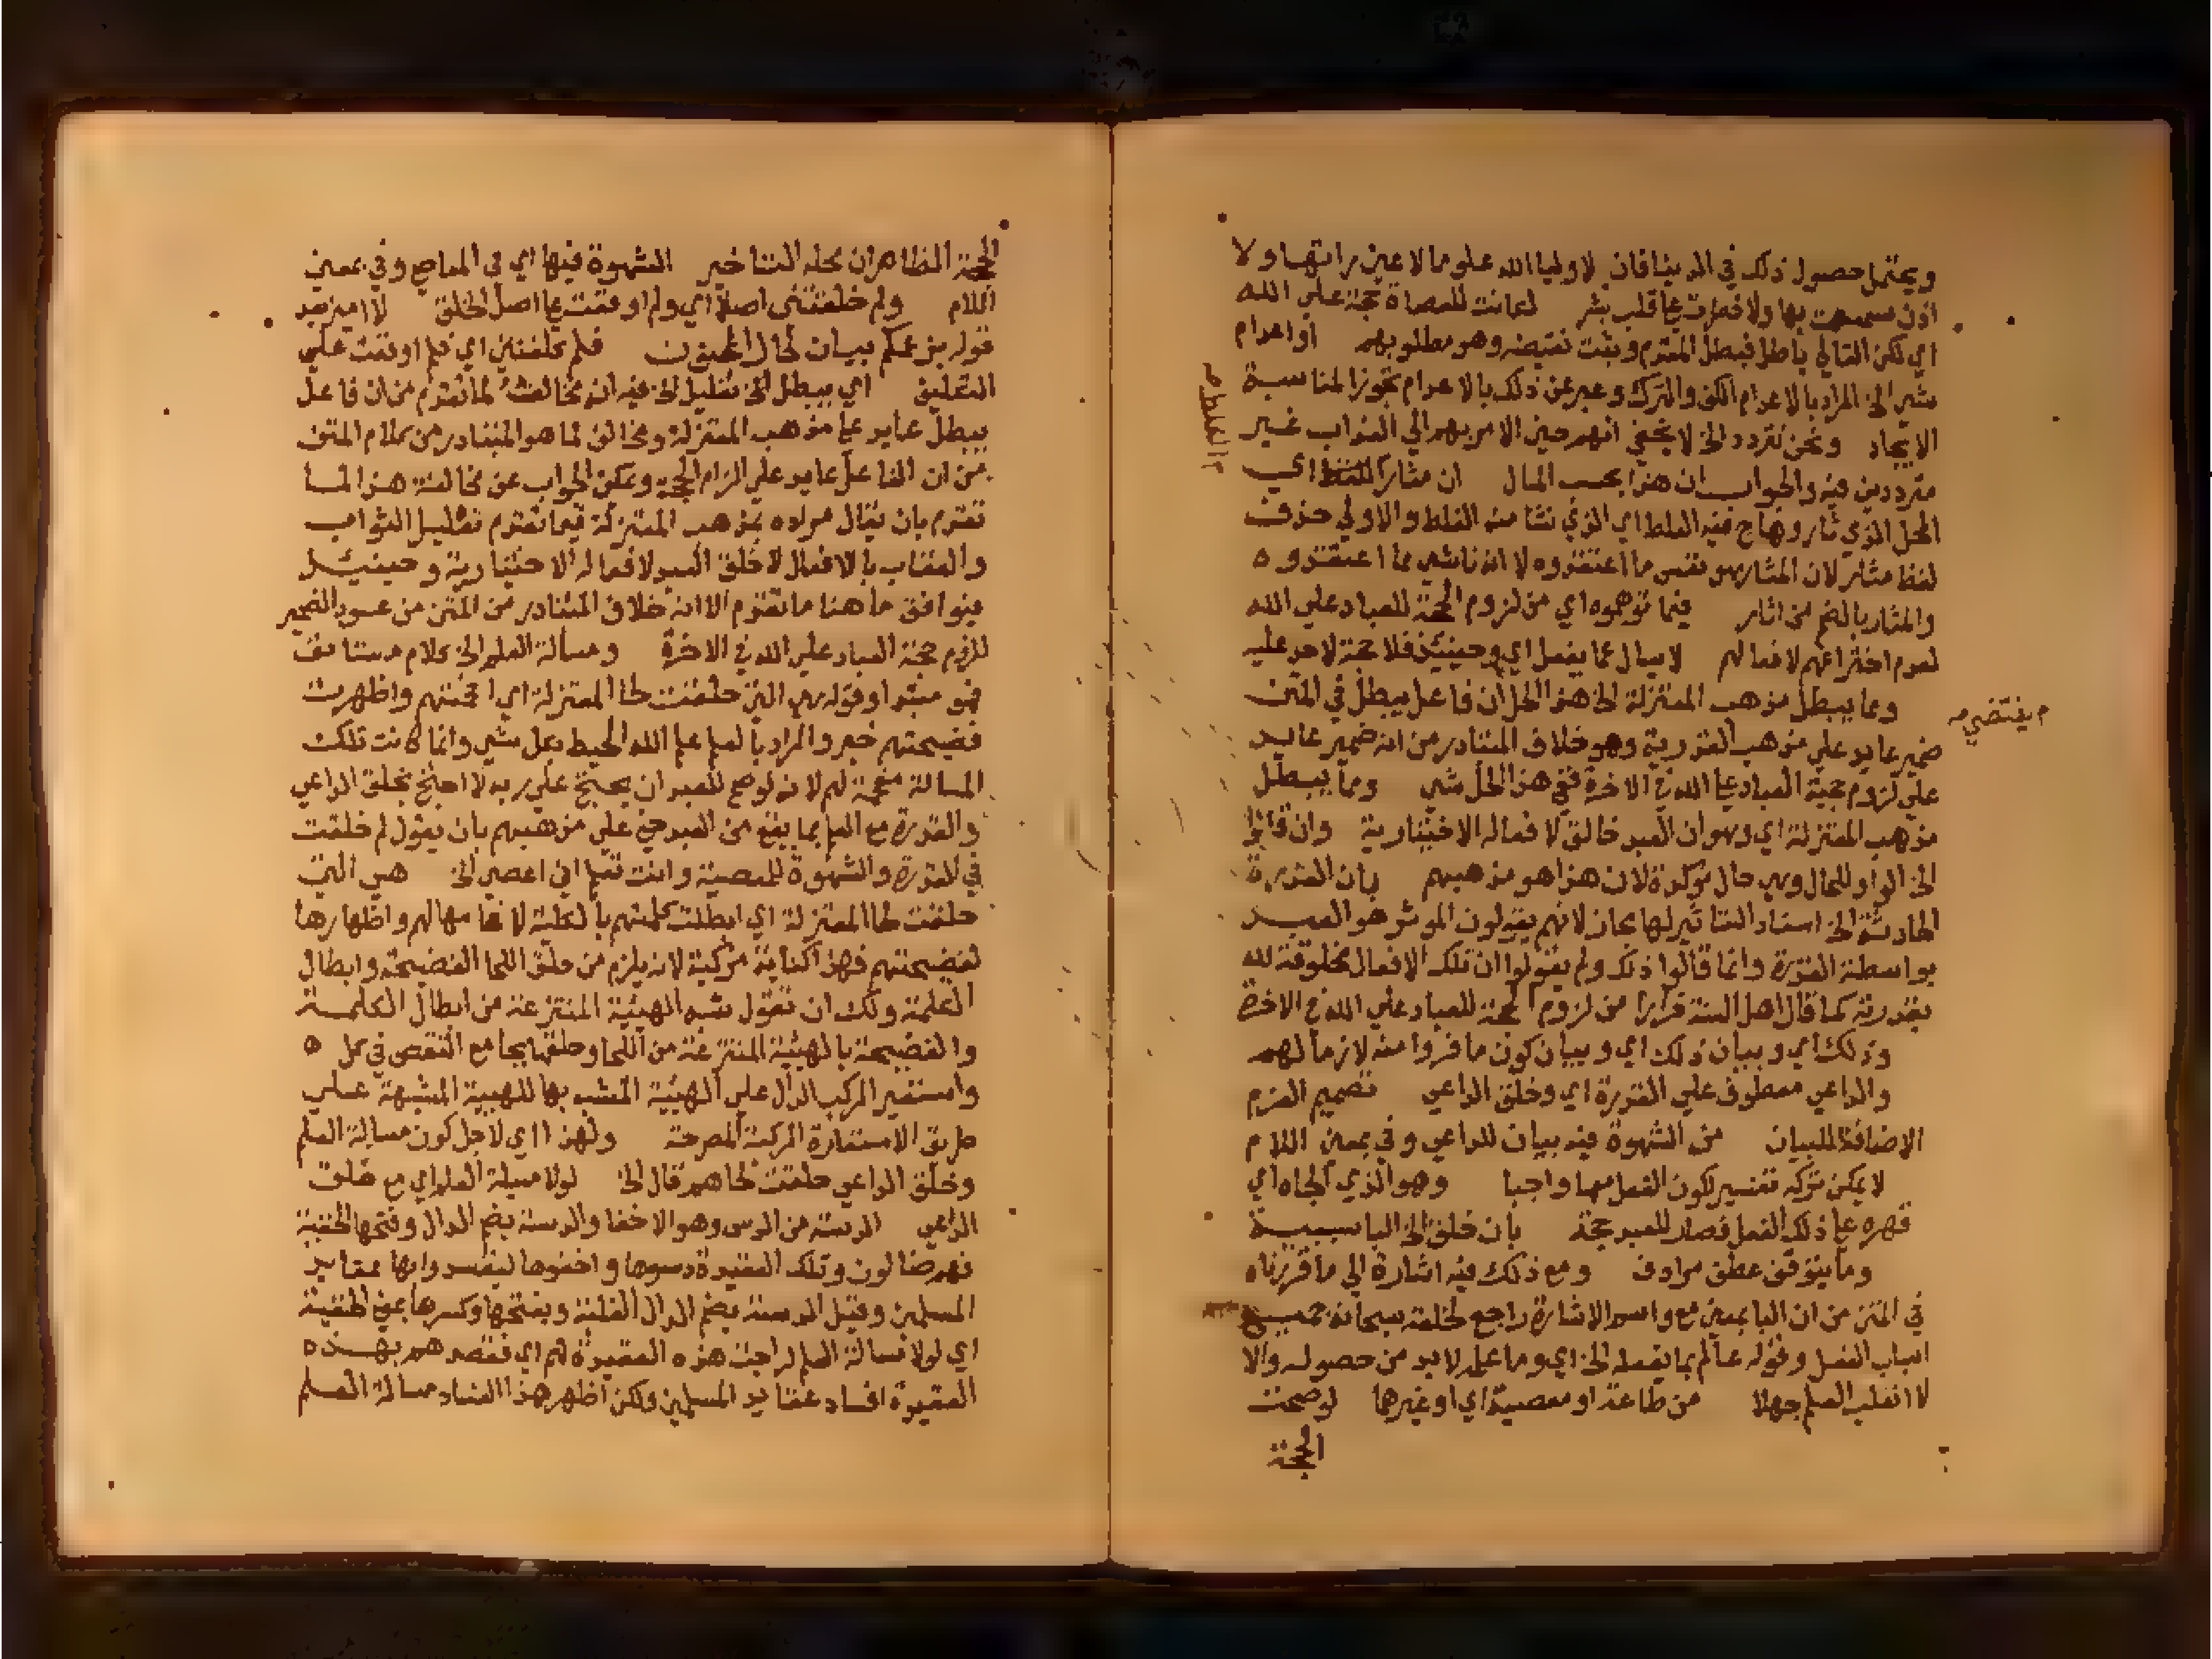 ويحتمل حصول ذلك في الدنيا فان لاوليا الله علوما لا عين راتها ولا
اذن سمعت بها ولا خطرت علي قلب بشر لكانت للعصاة حجة علي الله
اي لكن التالي باطل فبطل المقدم وثبت نقيضه وهو مطلوبهم او اعدام
شي الخ المراد بالاعدام الكف والترك وعبر عن ذلك بالاعدام تجوزا لمناسبة
الايجاد ونحن نتردد الخ لا يخفي انهم حين الامر بهم الي العذاب غير
مترددين فيه والجواب ان هذا بحسب المال ان مثار الغلط اي
المحل الذي ثار وهاج فيه الغلط اي الذي نشا منه الغلط والاولي حذف
لفظ مثار لان المثار هو نفس ما اعتقدوه لا انه ناشي مما اعتقدوه
والمثار بالضم من اثار فيما توهموه اي من لزوم الحجة للعباد علي الله
لعدم اختراعهم لافعالهم لا يسال عما يفعل اي وحينئذ فلا حجة لاحد عليه
ومما يبطل مذهب المعتزلة الخ هذا الحل ان فاعل يبطل في المتن
ضمير عايد علي مذهب القدرية وهو خلاف المتبادر من انه ضمير عايد
علي لزوم حجية العباد علي الله في الاخرة ففي هذا الحل شي ومما يبطل
مذهب المعتزلة اي وهو ان العبد خالق لافعاله الاختيارية وان قالوا
الخ الواو للحال وهي حال موكدة لان هذا هو مذهبهم بان القدرة
الحادثة الخ اسناد التاثير لها مجاز لانهم يقولون الموثر هو العبد
بواسطة القدرة وانما قالوا ذلك ولم يقولوا ان تلك الافعال مخلوقة لله
بقدرته كما قال اهل السنة فرارا من لزوم الحجة للعباد علي الله في الاخرة
وذلك اي وبيان ذلك اي وبيان كون ما فروا منه لازما لهم
والداعي معطوف علي القدرة اي وخلق الداعي تصميم العزم
الاضافة للبيان من الشهوة فيه بيان للداعي وفي بمعني اللام
لا يمكن تركه تفسير لكون الفعل معها واجبا وهو الذي الجاه اي
قهره علي ذلك الفعل فصار للعبد حجة بان خلق الخ البا سببية
وما يتوقف عطف مرادف ومع ذلك فيه اشارة الي ما قررناه
في المتن من ان البا بمعني مع واسم الاشارة راجع لخلقه سبحانه جميع
اسباب الفعل وقوله عالم بما يفعله الخ اي وما علم لا بد من حصوله والا
لا انقلب العلم جهلا من طاعة او معصية اي او غيرها لو صحت
الحجة
م الغلط م
م يقتضي م
الحجة الظاهر ان محله التاخير الشهوة فيها اي في المعاصي وفي بمعني
اللام ولم خلقتني اصلا اي ولم اوقعت علي اصل الخلق لا اميز بعد
قوله بزعمكم بيان لحال المجنون فلم كلفتني اي فلم اوقعت علي
التعليق اي يبطل الخ تعليل الخ فيه انه مخالفة لما تقدم من ان فاعل
يبطل عايد علي مذهب المعتزلة ومخالف لما هو المتبادر من كلام المتن
من ان الفاعل عايد علي الزام الحجة ويمكن الجواب عن مخالفة هذا لما
تقدم بان يقال مراده بمذهب المعتزلة فيما تقدم تعليل الثواب
والعقاب بالافعال لا خلق العبد لافعاله الاختيارية وحينئذ
فيوافق ما هنا ما تقدم الا انه خلاف المتبادر من المتن من عود الضمير
للزوم حجة العباد علي الله في الاخرة ومسالة العلم الخ كلام مستانف
فهو مبتدا وقوله هي التي حلقت لحا المعتزلة اي اخجلتهم واظهرت
فضيحتهم خبر والمراد بالعلم علم الله المحيط بكل شي وانما كانت تلك
المسالة مفحمة لهم لانه لو صح للعبد ان يحتج علي ربه لاحتج بخلق الداعي
والقدرة مع العلم بما يقع من العبد حتي علي مذهبهم بان يقول لم خلقت
في القدرة والشهوة للمعصية وانت تعلم اني اعصي الخ هي التي
حلقت لحا المعتزلة اي ابطلت كلمتهم بالكلية لافحامها لهم واظهارها
لفضيحتهم فهذا كناية مركبة لانه يلزم من حلق اللحا الفضيحة وابطال
الكلمة ولك ان تقول شبه الهيئة المنتزعة من ابطال الكلمة
والفضيحة بالهيئة المنتزعة من اللحا وحلقها بجامع النقص في كل
واستعير المركب الدال علي الهيئة المشبه بها للهيئة المشبهة علي
طريق الاستعارة المركبة المصرحة ولهذا اي لاجل كون مسالة العلم
وخلق الداعي حلقت لحاهم قال الخ لولا مسيلة العلم اي مع خلق
الداعي الدسة من الدس وهو الاخفا والدسة بضم الدال وفتحها الخفية
فهم ضالون وتلك العقيدة دسوها واخفوها ليفسدوا بها عقايد
المسلمين وقيل الدسة بضم الدال الفلتة وبفتحها وكسرها بمعني الخفية
اي لولا مسالة العلم لراجت هذه العقيدة لهم اي فقصدهم بهذه
العقيدة افساد عقايد المسلمين ولكن اظهر هذا الفساد مسالة العلم